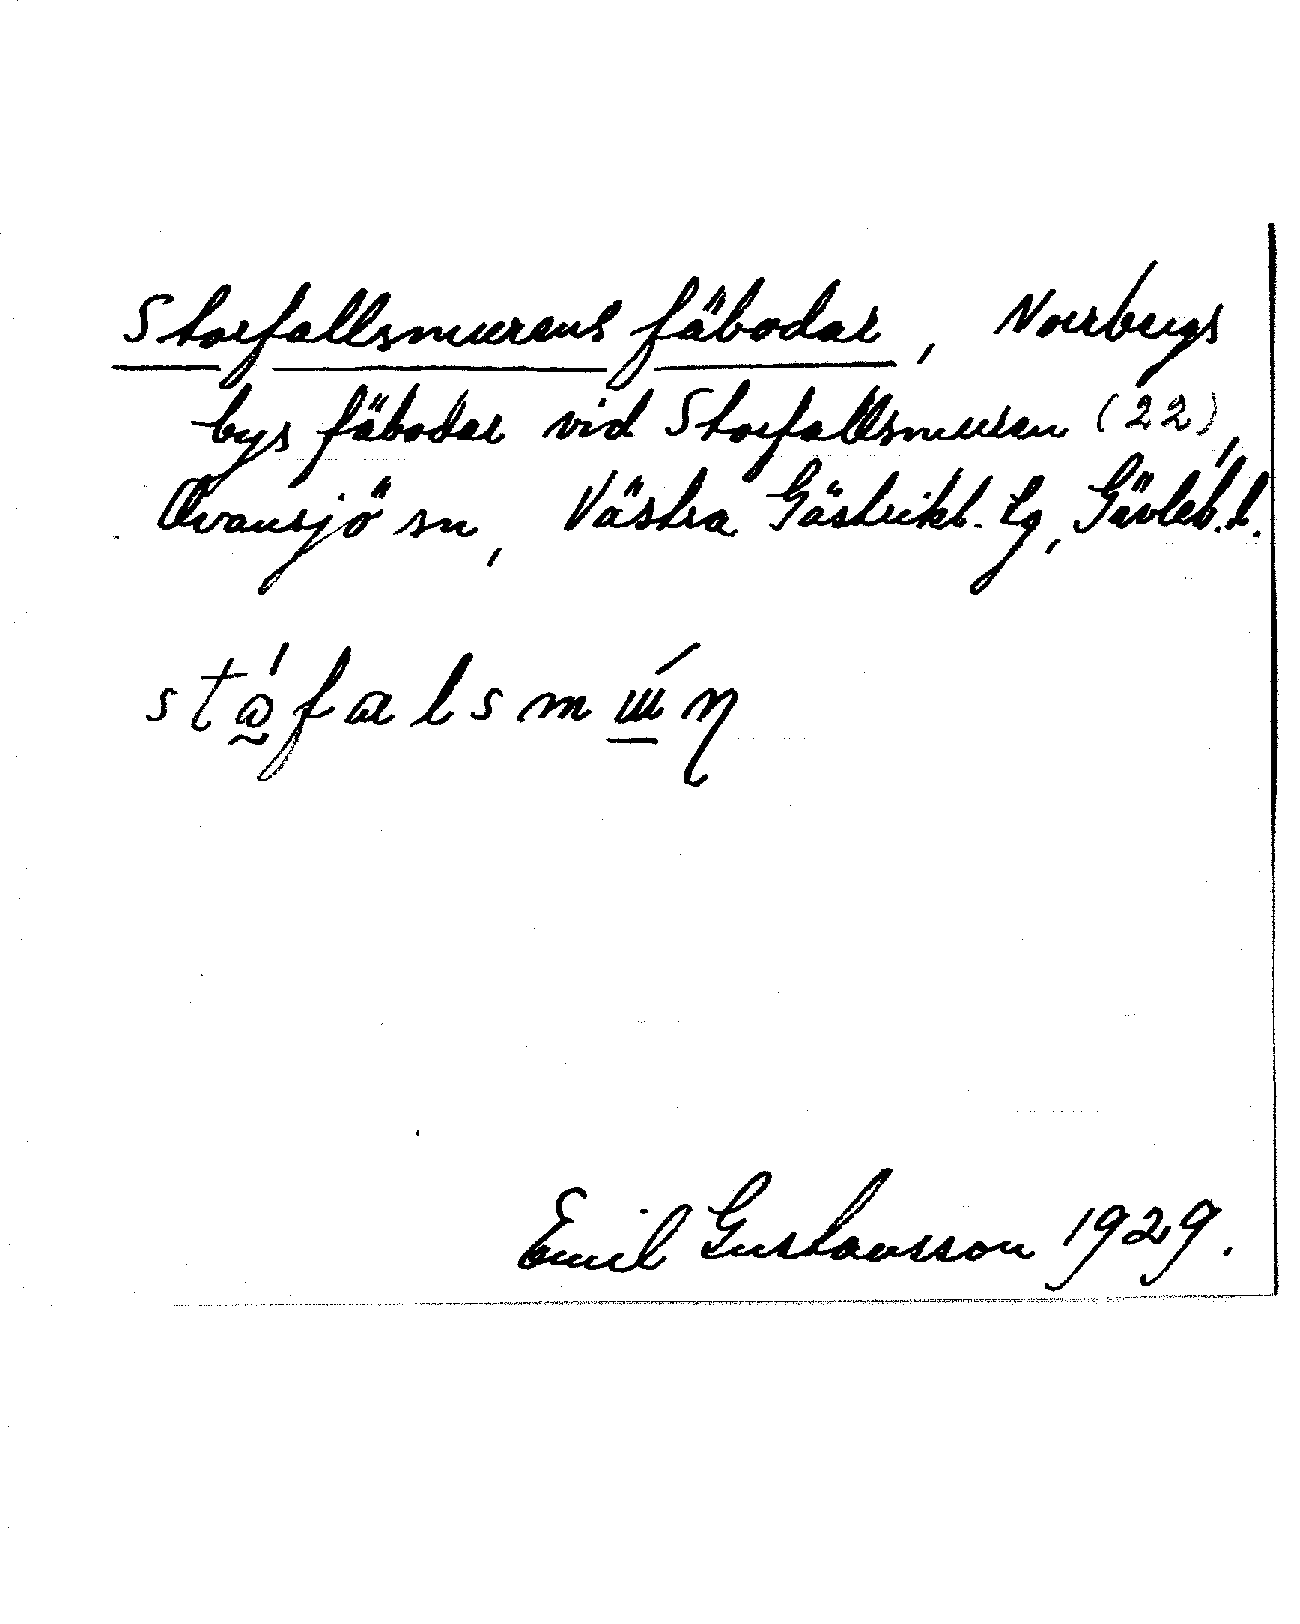 Storfallsmurens fäbodar, Norrbergs
bys fäbodar vid Storfallsmuren (22),
Ovansjö sn, Västra Gästrikl. tg, Gävleb. l.
Emil Gustavsson 1929.